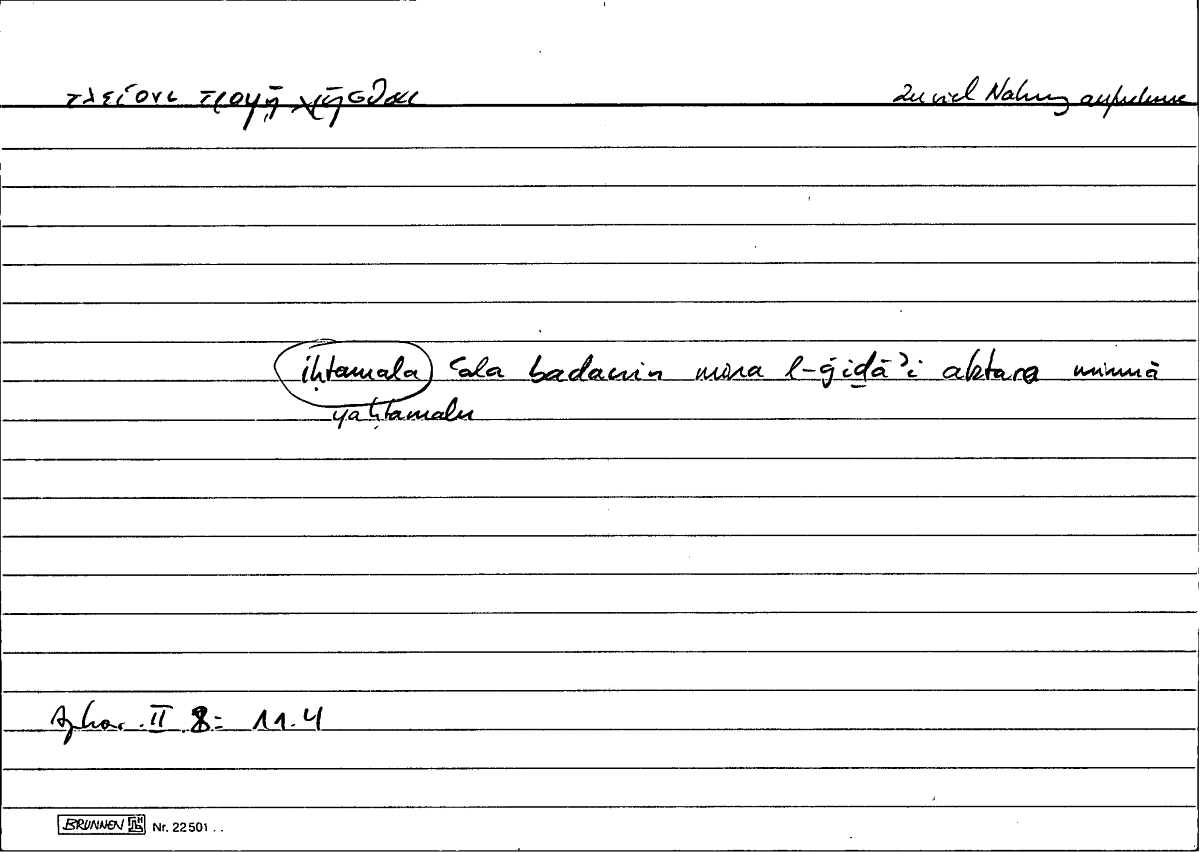 πλείονι τροφῇ χρῆσθαι
zuviel Nahrung aufnehmen
iḥtamala ʿala badanin mina l-ġiḏāʾi akṯara mimmā
yaḥtamalu
Aphor. II 8 = 11.4
BRUNNEN Nr. 22501 ..